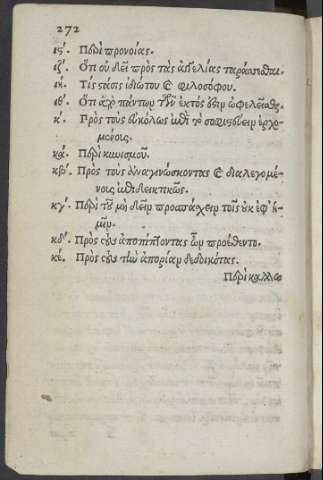 272
ιϛ΄. Περὶ προνοίας.
ιζ΄. Ὅτι οὐ δεῖ πρὸς τὰς ἀγγελίας ταράσσεσθαι.
ιη΄. Τίς στάσις ἰδιώτου καὶ φιλοσόφου.
ιθ΄. Ὅτι ἀπὸ πάντων τῶν ἐκτὸς ἔστιν ὠφελεῖσθαι.
κ΄. Πρὸς τοὺς εὐκόλως ἐπὶ τὸ σοφιστεύειν ἐρχο-
μένους.
κα΄. Περὶ κυνισμοῦ.
κβ΄. Πρὸς τοὺς ἀναγινώσκοντας καὶ διαλεγομέ-
νους ἐπιδεικτικῶς.
κγ΄. Περὶ τοῦ μὴ δεῖν προσπάσχειν τοῖς οὐκ ἐφ' ἡ-
μῖν.
κδ΄. Πρὸς τοὺς ἀποπίπτοντας ὧν προέθεντο.
κε΄. Πρὸς τοὺς τὴν ἀπορίαν δεδοικότας.
Περὶ καλλω